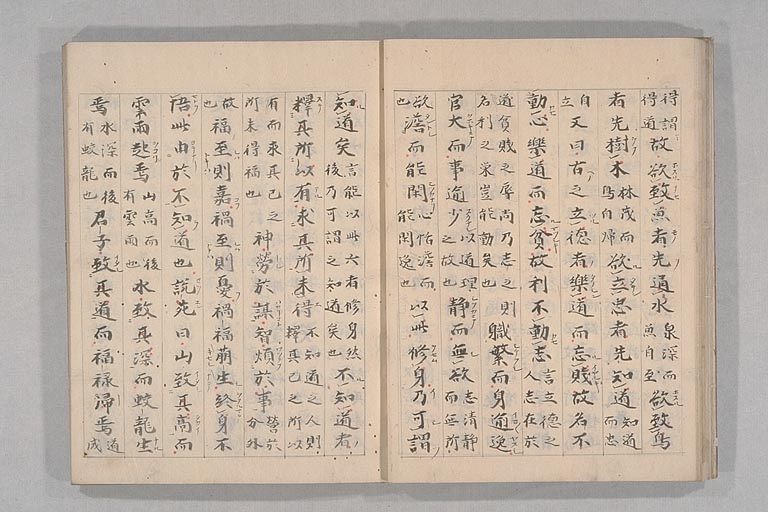 得謂
得道故欲致魚者先通水泉深而魚自至欲致鳥
者先樹木林茂而鳥自歸欲立忠者先知道知道而忠
自立又曰古之立德者樂道而忘賤故名不
動心樂道而忘貧故利不動志言立德之人志在於
道貧賤之辱尚乃忘之名利之榮豈能動矣也則職繁而身逾逸
官大而事逾少以道理之故也靜而無欲志清靜而無所
欲也澹而能閑心恬澹而能閑逸也以此修身乃可謂
知道矣言能以此六者修身然後乃可謂之知道矣也不知道者
釋其所以有求其所未得不知道之人則釋其己之所以
有而求其己之所未得福也神勞於謀智煩於事營於分外
故也福至則喜禍至則憂禍福萌生終身不
悟此由於不知道也說苑曰山致其高而
雲雨起焉山高而後有雲雨也水致其深而蛟龍生
焉水深而後有蛟龍也君子致其道而福祿歸焉道成